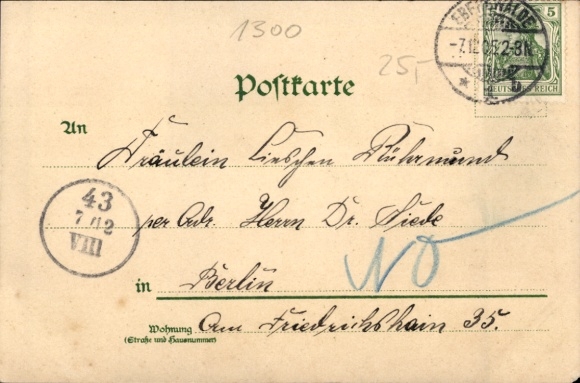 1300
EBERSWALDE
-7.12.05.2-3N.
* b
5
DEUTSCHES REICH
25,-
Postkarte
An
Fräulein Lieschen Rührmund
43
7/12
VIII
per Adr. Herrn Dr. Fiede
NO
in Berlin
Wohnung Am Friedrichshain 35.
(Straße und Hausnummer)